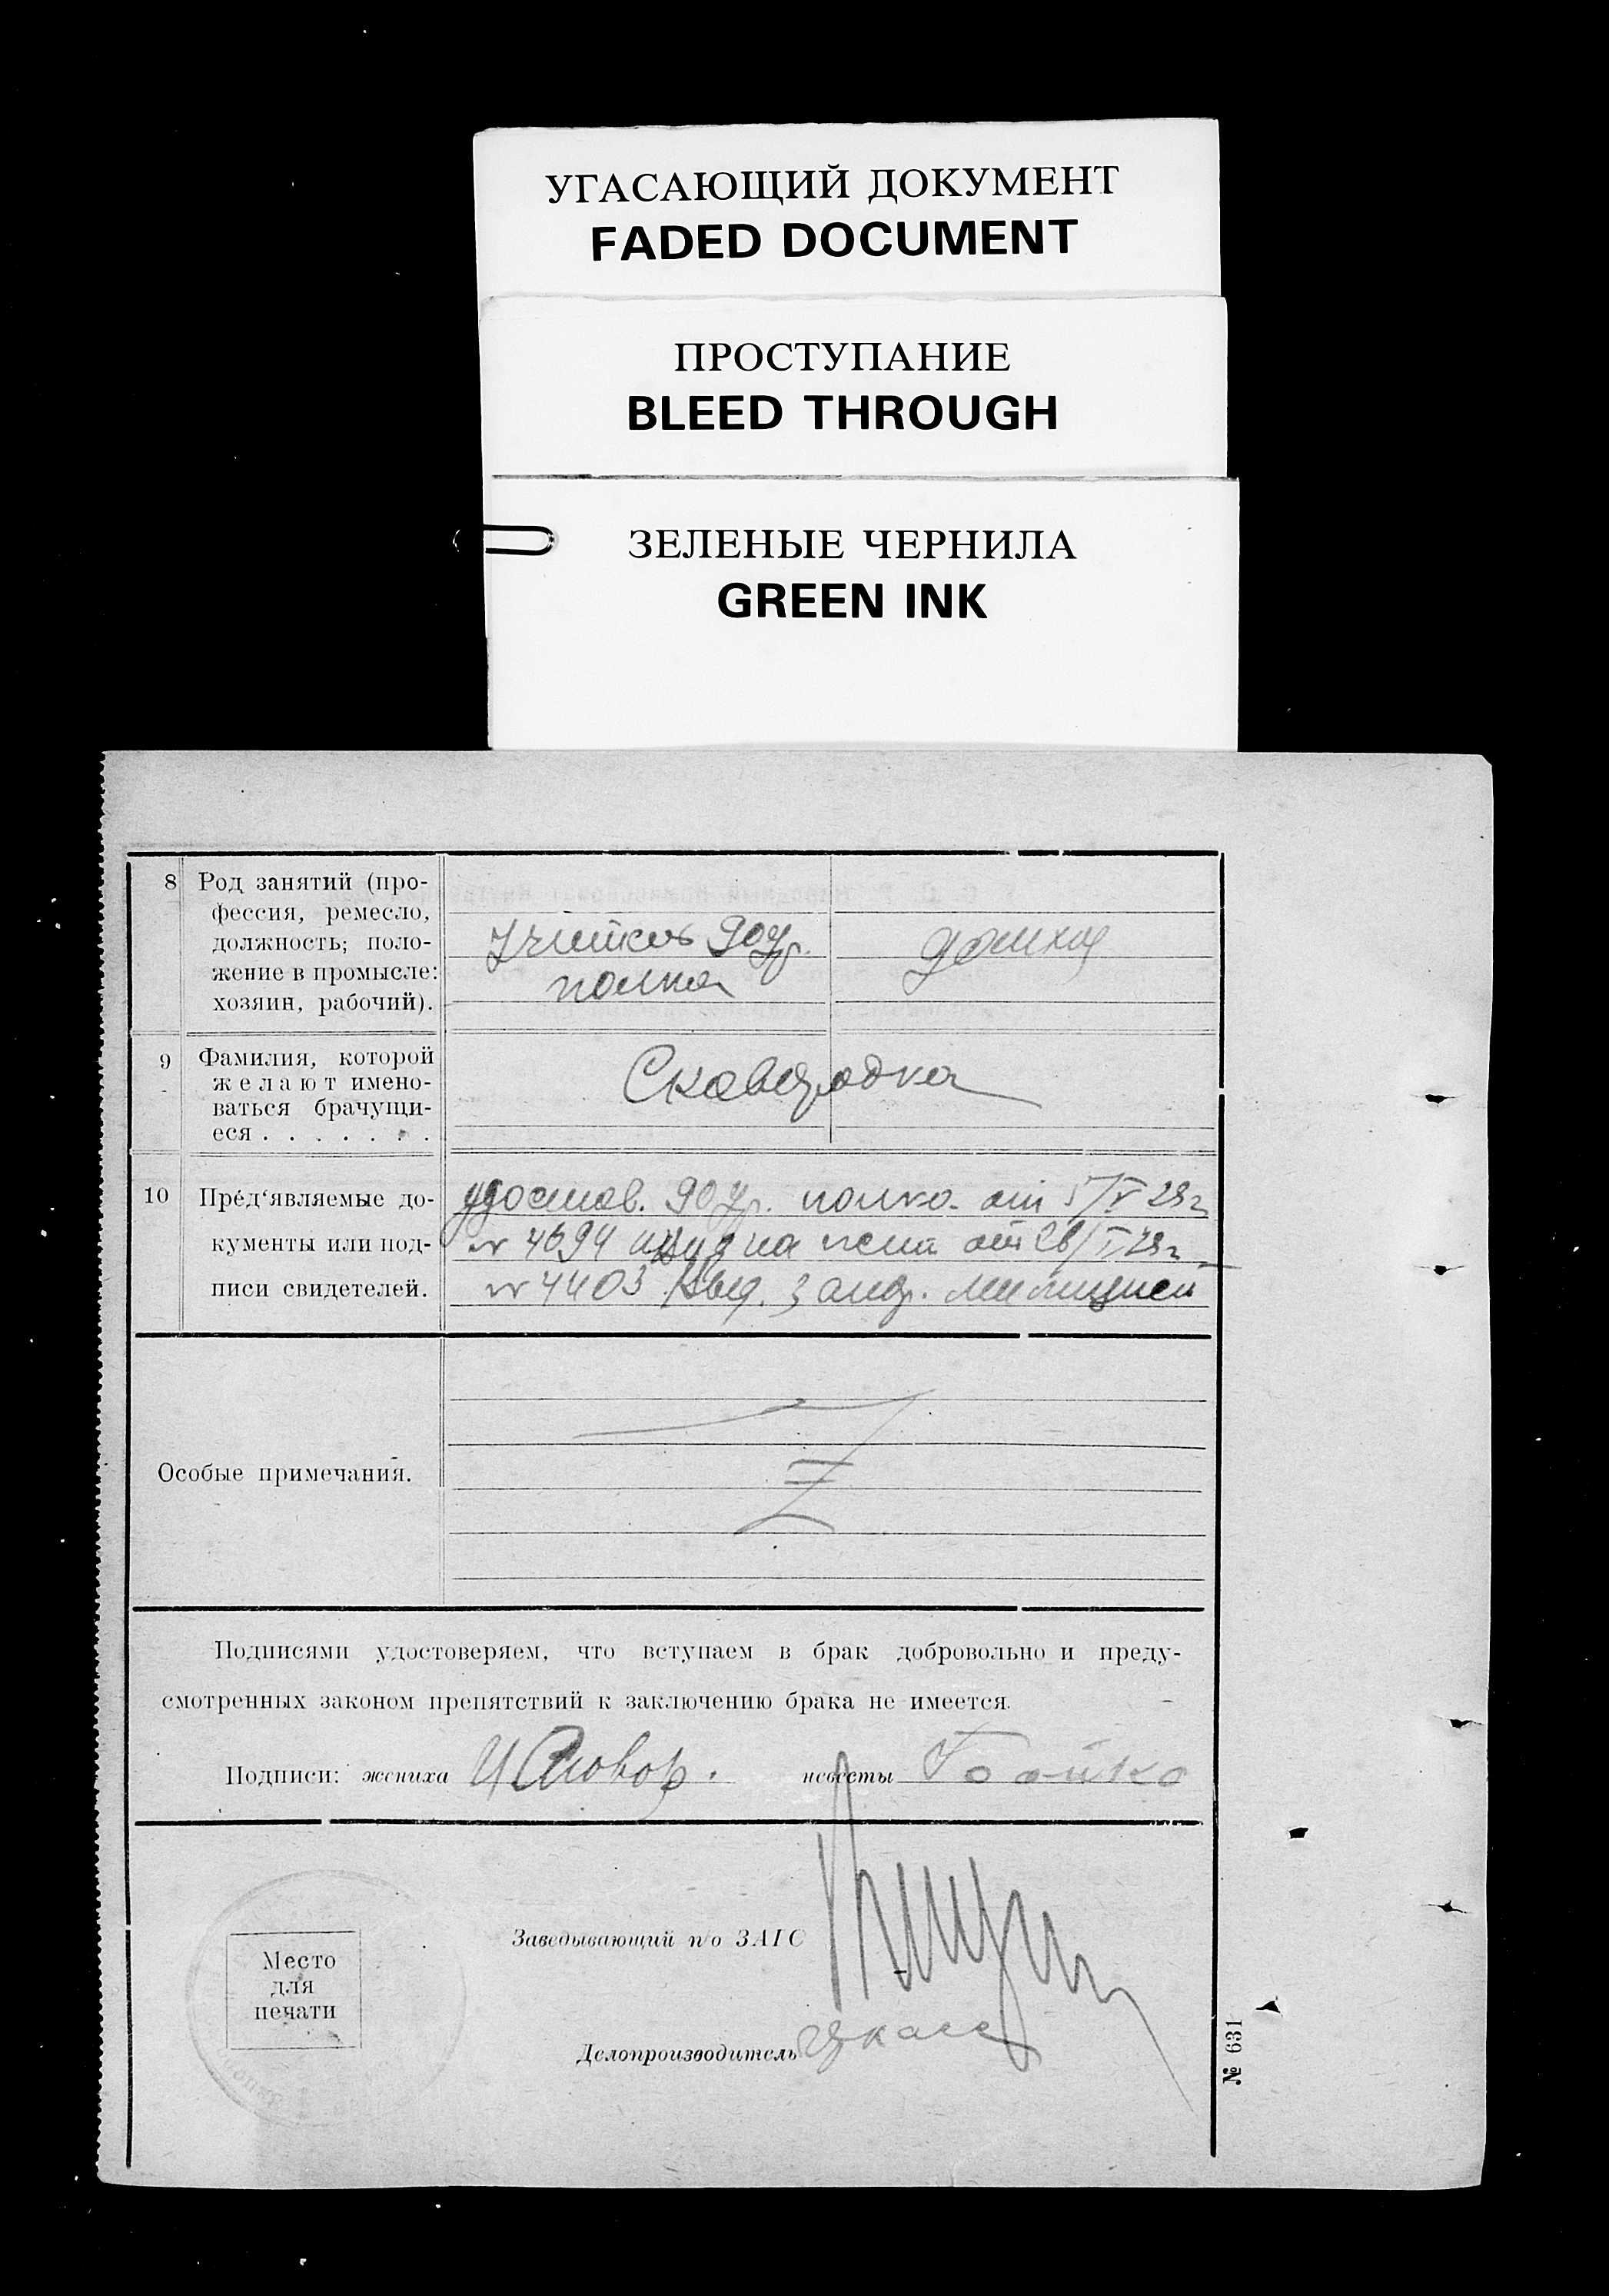 УГАСАЮЩИЙ ДОКУМЕНТ
FADED DOCUMENT
ПРОСТУПАНИЕ
BLEED THROUGH
ЗЕЛЕНЫЕ ЧЕРНИЛА
GREEN INK
8 Род занятий (про-
фессия, ремесло,
должность; поло-
жение в промысле:
хозяин, рабочий).
90
полка
9 Фамилия, которой
желают имено-
ваться брачущи-
еся . . . . . . .
Сковородка
10 Пред‘являемые до-
кументы или под-
писи свидетелей.
удостов. 90 полка от 5/V 28г
№ 4694 на от 26/I 28г
№ 4403 выд. милицией
Особые примечания.
Подписями удостоверяем, что вступаем в брак добровольно и преду-
смотренных законом препятствий к заключению брака не имеется.
Подписи: жениха невесты Бойко
Заведывающий п/о ЗАГС
Место
для
печати
Делопроизводитель
№ 631